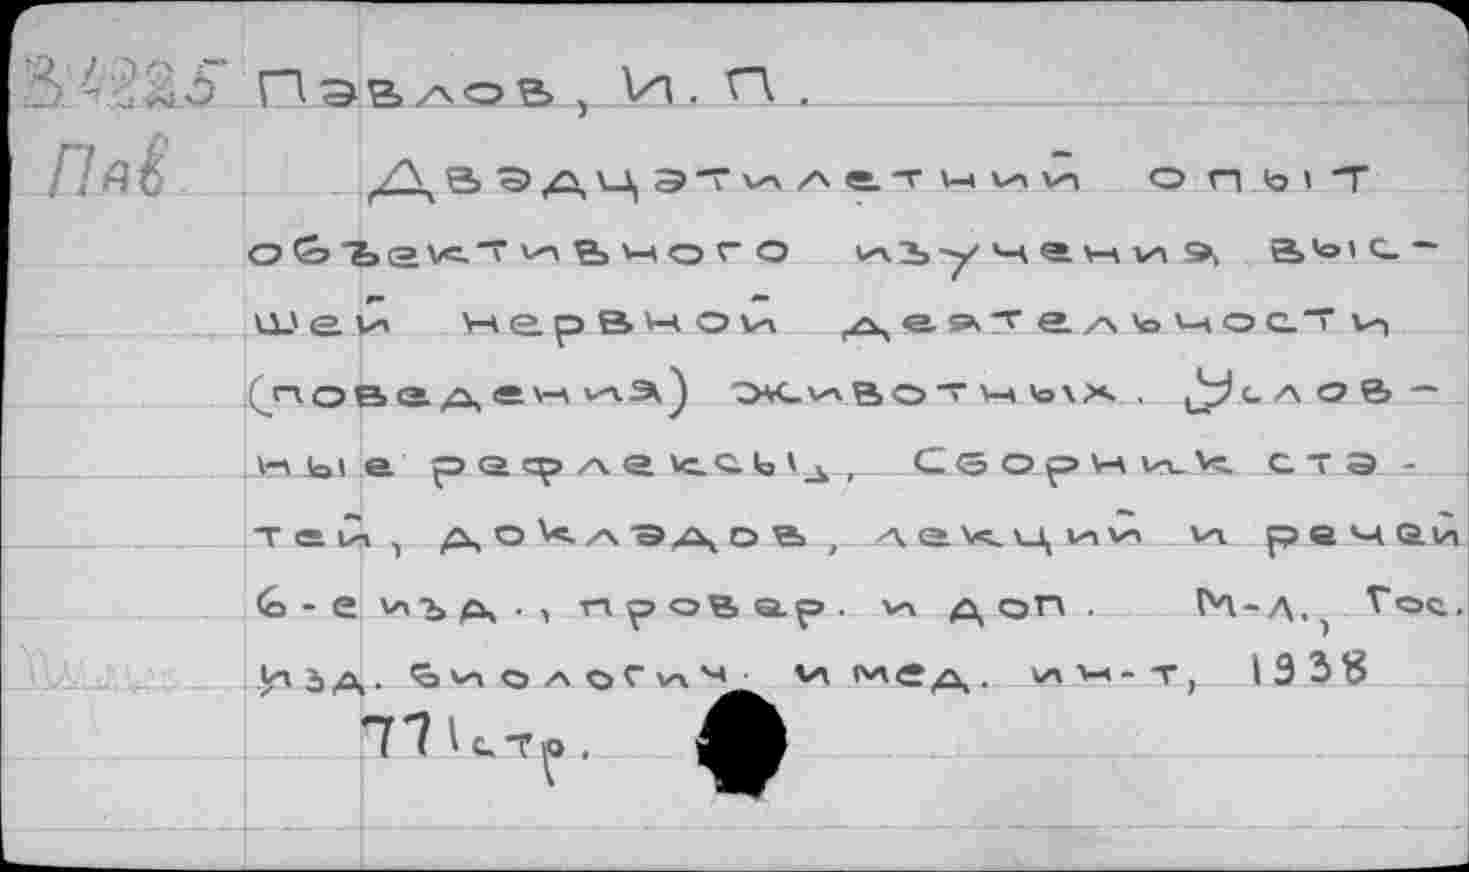 В4225 Павлов, И. П.
Паб Двадцатилетний опыт
объективного изучения выс-
шей нервной деятельности
(поведения) животных. Услов-
ные рефлексы, Сборник ста-
тей, докладов, лекций и речей
6-е изд., провер. и доп. М-Л., Гос.
Изд. биологич. и мед. ин-т, 1938
771 стр.